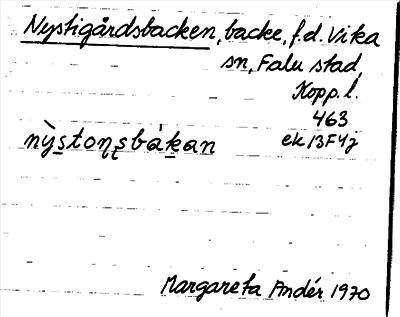 Nystigårdsbacken, backe, f.d. Vika
sn, Falu stad,
Kopp. l.
463
ek 13F4j
nỳstoņsbàkan
Margareta Andér 1970